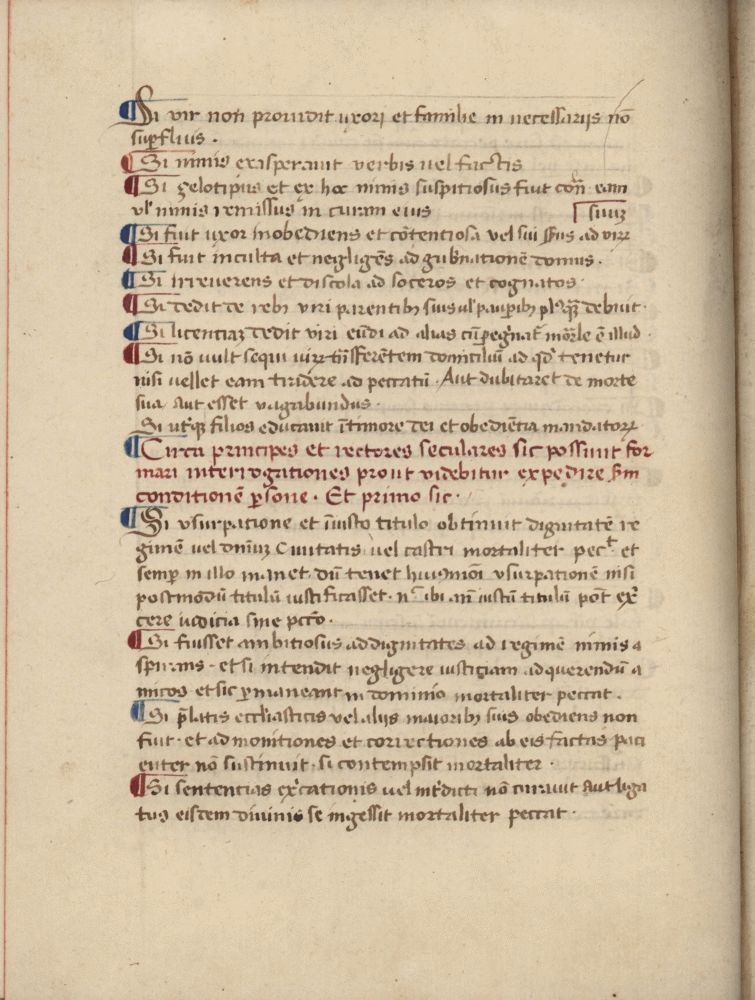 ¶ Si vir non prouidit uxori et familie in necessarijs nō
suꝑfluis .
¶ Si nimis exasperauit verbis uel factis
¶ Si gelotipus et ex hoc nimis suspitiosus fuit eam
ul' nimis remissus in curam eius
suuꝫ
¶ Si fuit uxor inobediens et cōtentiosa vel ad virꝝ
¶ Si fuit inculta et negligēs ad gub̄nationē domus .
¶ Si irreuerens et discola ad soceros et cognatos
¶ Si dedit de reb₉ uiri parentib₉ suis ul' paupib₉ debuit .
¶ Si licentiaꝫ dedit viri eūdi ad alias ē illud
¶ Si nō uult sequi uirꝝ domiciliū ad qd' tenetur
nisi uellet eam ad peccatū . Aut dubitaret de morte
sua . aut esset vagabundus .
Si utꝫqꝫ filios educauit ī timore dei et obediētia mandatorꝝ
¶ Circa principes et rectores seculares sic possunt for
mari interrogationes prout videbitur expedire scd̄m
conditionē ꝑsone . Et primo sic .
¶ Si vsurpacione et iniusto titulo obtinuit dignitatē re
gimē uel dn̄iuꝫ Ciuitatis uel castri mortaliter pect et
semꝑ in illo manet . dū tenet huiꝰmōi vsurpationē nisi
postmodū titulū iustificasset . n ibi an̄ iustū titulū pōt ex̾
cere iudicia sine pctō .
¶ Si fuisset ambitiosus ad dignitates ad regimē nimis a
spirans . et si intendit negligere iustitiam ad querendū a
micos et sic ꝑmaneant in dominio mortaliter peccat .
¶ Si p̄latis eccl̄iasticis vel alijs maiorib₉ suis obediens non
fuit . et admonitiones et correctiones ab eis factas paci
enter nō sustinuit . si contempsit mortaliter .
¶ Si sentencias ex̄cationis uel int̄dicti nō curauit aut liga
tus eisdem diuinis se ingessit mortaliter peccat .